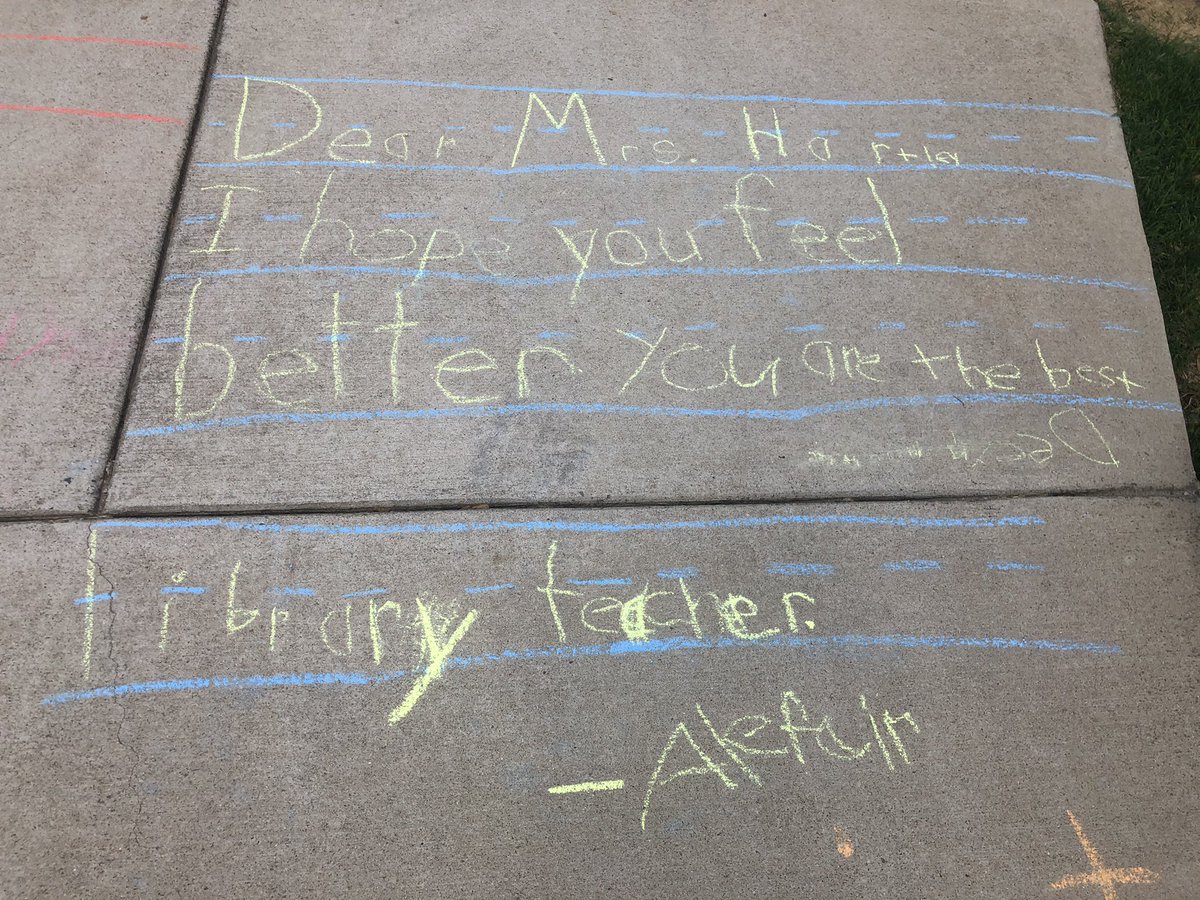 Dear Mrs. Hartley
I hope you feel
better you are the best
library teacher.